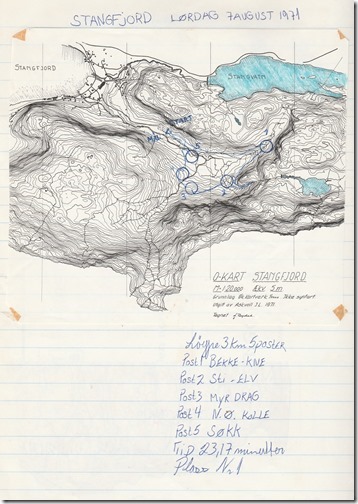 STANGFJORD LØRDAG 7 AUGUST 1971
STANGFJORD
STANGVATN
MÅL
START
1
5
O-KART STANGFJORD
M-1:20.000 Ekv 5m
1971
Løype 3 km 5 poster
Post 1 BEKKE-KNE
Post 2 Sti-ELV
Post 3 MYR DRAG
Post 4 N.Ø. KOLLE
Post 5 SØKK
TID 23,17 minutter
Plass Nr. 1